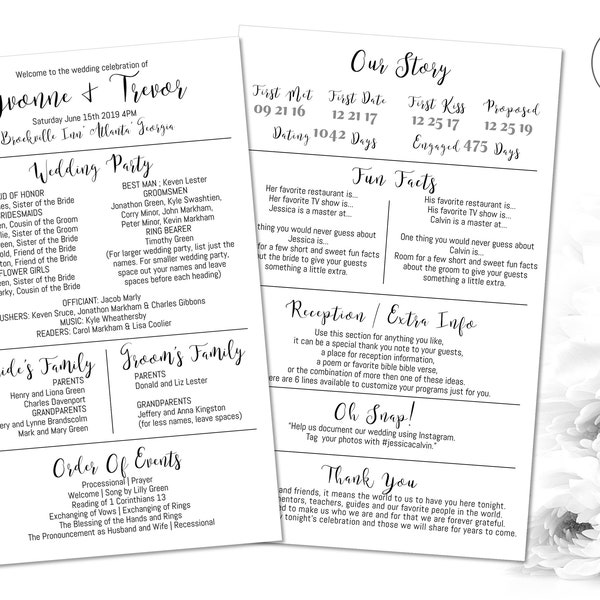 Welcome to the wedding celebration of
Yvonne & Trevor
Saturday June 15th 2019 4PM
Brockville Inn' Atlanta' Georgia
Wedding Party
OF HONOR
Sister of the Bride
Cousin of the Groom
Sister of the Bride
Friend of the Bride
Friend of the Bride
FLOWER GIRLS
Sister of the Bride
Cousin of the Bride
BEST MAN ; Keven Lester
GROOMSMEN
Jonathon Green, Kyle Swashtien,
Corry Minor, John Markham,
Peter Minor, Kevin Markham
RING BEARER
Timothy Green
(For larger wedding party, list just the
names. For smaller wedding party,
space out your names and leave
spaces before each heading)
OFFICIANT: Jacob Marly
USHERS: Keven Sruce, Jonathon Markham & Charles Gibbons
MUSIC: Kyle Wheathersby
READERS: Carol Markham & Lisa Coolier
Bride's Family
PARENTS
Henry and Liona Green
Charles Davenport
GRANDPARENTS
and Lynne Brandscolm
Mark and Mary Green
Groom's Family
PARENTS
Donald and Liz Lester
GRANDPARENTS
Jeffery and Anna Kingston
(for less names, leave spaces)
Order Of Events
Processional | Prayer
Welcome | Song by Lilly Green
Reading of 1 Corinthians 13
Exchanging of Vows | Exchanging of Rings
The Blessing of the Hands and Rings
The Pronouncement as Husband and Wife | Recessional
Our Story
First Met
09 21 16
First Date
12 21 17
First Kiss
12 25 17
Proposed
12 25 19
Dating 1042 Days
Engaged 475 Days
Fun Facts
Her favorite restaurant is...
Her favorite TV show is...
Jessica is a master at...
One thing you would never guess about
Jessica is...
for a few short and sweet fun facts
about the bride to give your guests
something a little extra.
His favorite restaurant is...
His favorite TV show is...
Calvin is a master at...
One thing you would never guess about
Calvin is...
Room for a few short and sweet fun facts
about the groom to give your guests
something a little extra.
Reception / Extra Info
Use this section for anything you like,
it can be a special thank you note to your guests,
a place for reception information,
a poem or favorite bible bible verse,
or the combination of more then one of these ideas.
are 6 lines available to customize your programs just for you.
Oh Snap!
"Help us document our wedding using Instagram.
Tag your photos with #jessicacalvin."
Thank You
and friends, it means the world to us to have you here tonight.
mentors, teachers, guides and our favorite people in the world.
to make us who we are and for that we are forever grateful.
tonight's celebration and those we will share for years to come.